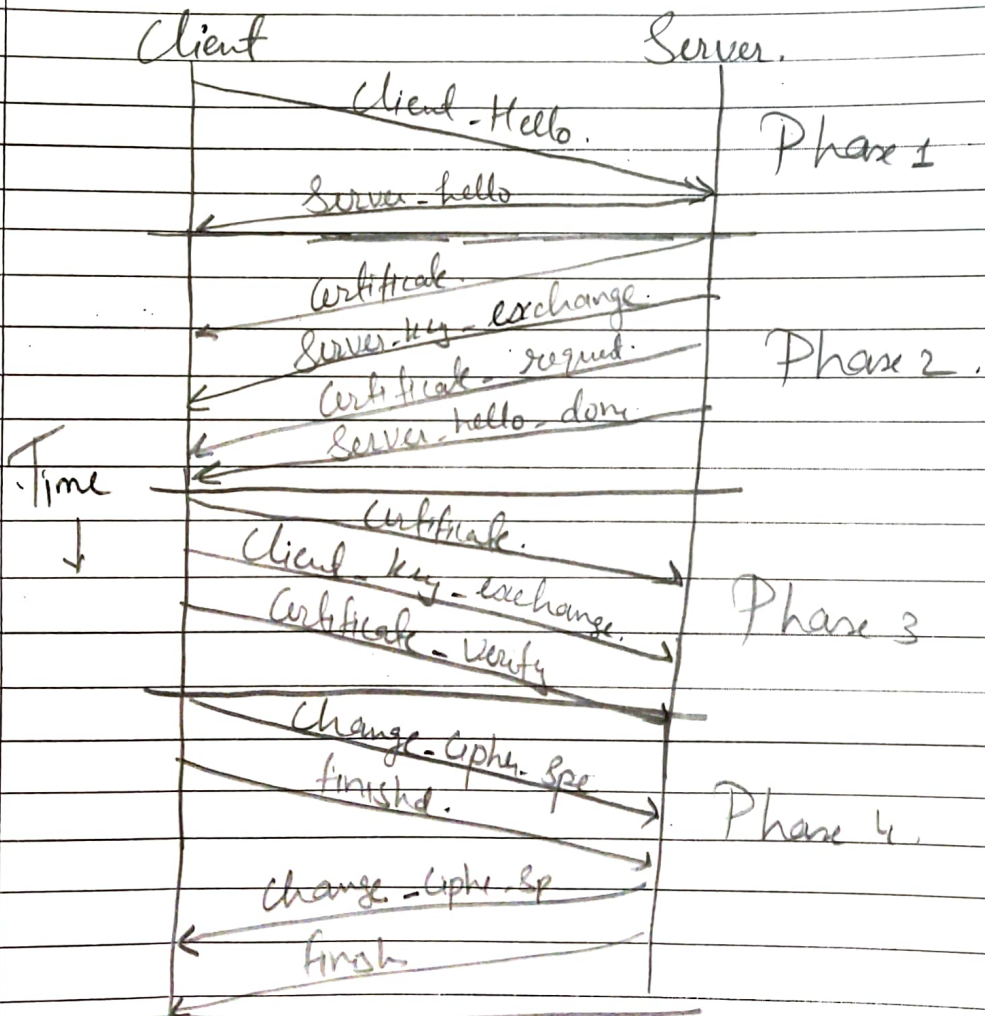 Client Server.
Client_Hello.
Phase 1
Server_hello
Certificate.
Server_key_exchange.
Certificate_request.
Phase 2.
Server_hello_done
Time
Certificate.
Client_key_exchange.
Phase 3
Certificate_verify
Change_Cipher_Spe
finished.
Phase 4.
Change_Ciphe_Sp
finish